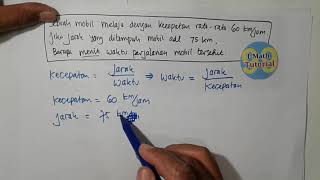 Sebuah mobil melaju dengan kecepatan rata-rata 60 km/jam
jika jarak yang ditempuh mobil adl 75 km.
Berapa menit waktu perjalanan mobil tersebut
Math
Tutorial
Kecepatan = Jarak / Waktu ⇒ Waktu = Jarak / Kecepatan
Kecepatan = 60 km/jam
Jarak = 75 km